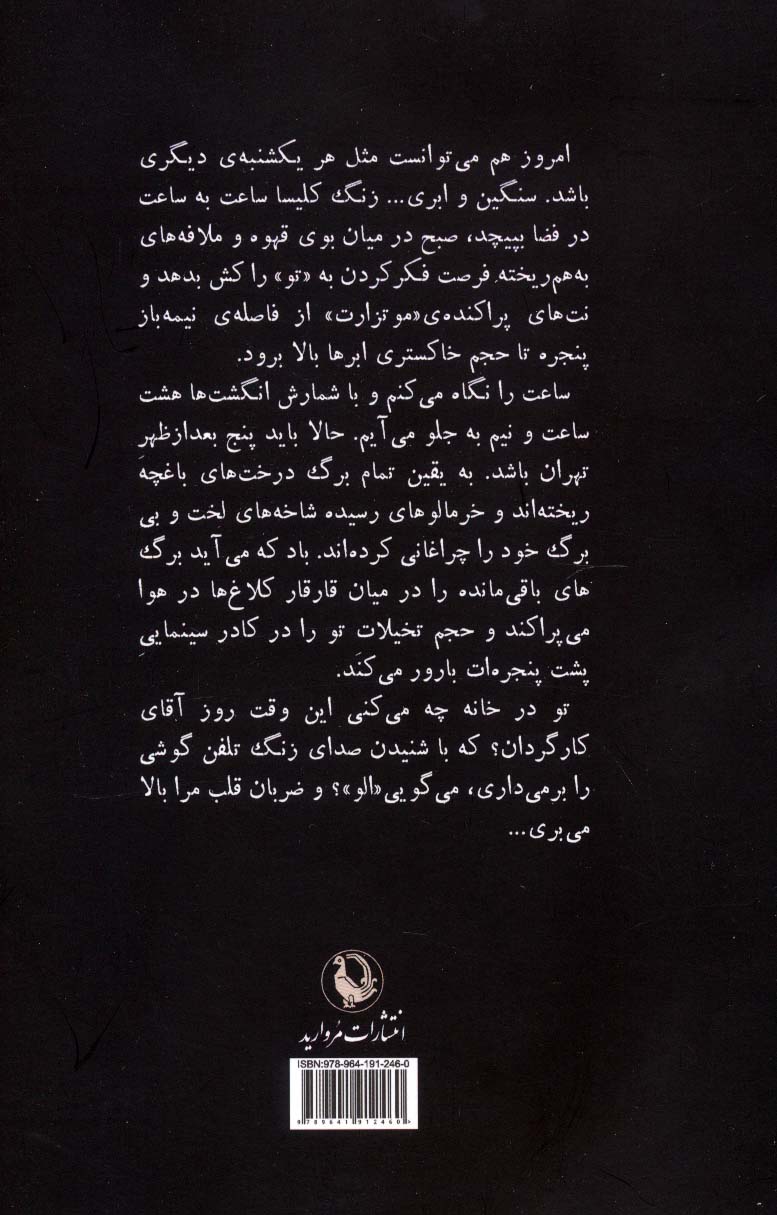 امروز هم می‌توانست مثل هر یکشنبه‌ی دیگری
باشد. سنگین و ابری... زنگ کلیسا ساعت به ساعت
در فضا بپیچد، صبح در میان بوی قهوه و ملافه‌های
به‌هم‌ریخته فرصت فکرکردن به «تو» را کش بدهد و
نت‌های پراکنده‌ی «موتزارت» از فاصله‌ی نیمه‌باز
پنجره تا حجم خاکستری ابرها بالا برود.
ساعت را نگاه می‌کنم و با شمارش انگشت‌ها هشت
ساعت و نیم به جلو می‌آیم. حالا باید پنج بعدازظهرِ
تهران باشد. به یقین تمام برگ درخت‌های باغچه
ریخته‌اند و خرمالوهای رسیده شاخه‌های لخت و بی
برگ خود را چراغانی کرده‌اند. باد که می‌آید برگ
های باقی‌مانده را در میان قارقار کلاغ‌ها در هوا
می‌پراکند و حجم تخیلات تو را در کادر سینماییِ
پشت پنجره‌ات بارور می‌کنَد.
تو در خانه چه می‌کنی این وقت روز آقای
کارگردان؟ که با شنیدن صدای زنگ تلفن گوشی
را برمی‌داری، می‌گویی «الو»؟ و ضربان قلب مرا بالا
می‌بری...
انتشارات مروارید
ISBN:978-964-191-246-0
9 789641 912460 >